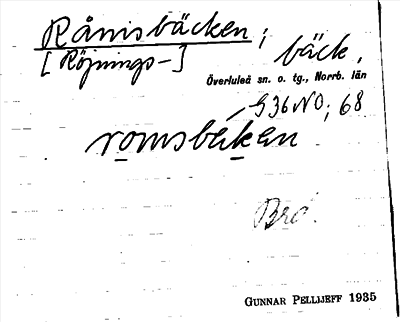 Rånisbäcken; bäck,
[Röjnings-]
Överluleå sn. o. tg., Norrb. län
G36NO; 68
romsbäken
Brd.
GUNNAR PELLIJEFF 1935